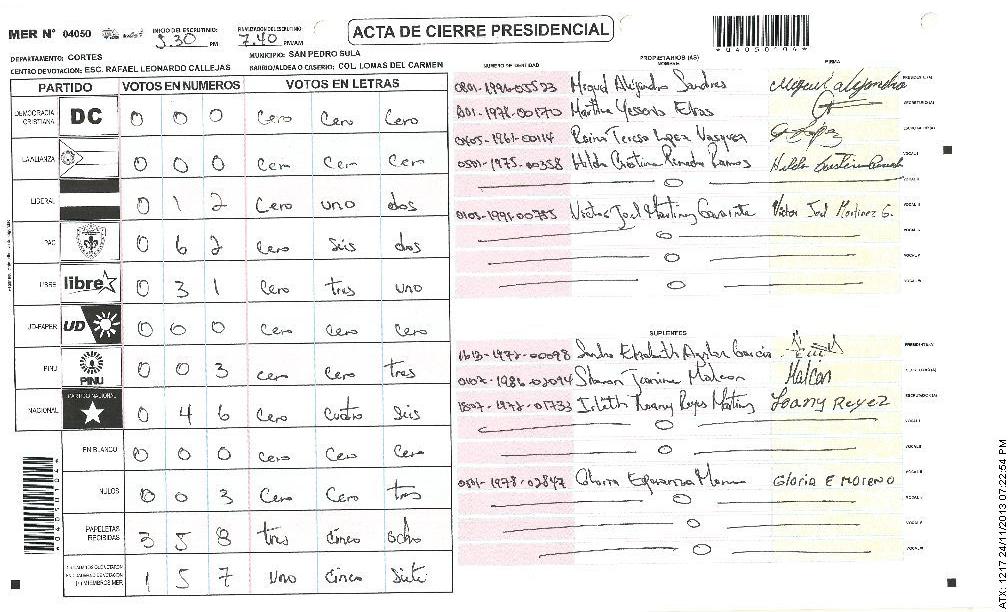 MER N° 04050
INICIO DEL ESCRUTINIO: 5.30 PM
FINALIZACION DEL ESCRUTINIO: 7.40 PM/AM
ACTA DE CIERRE PRESIDENCIAL
*04050104*
DEPARTAMENTO: CORTES
MUNICIPIO: SAN PEDRO SULA
CENTRO DE VOTACION: ESC. RAFAEL LEONARDO CALLEJAS
BARRIO/ALDEA O CASERIO: COL. LOMAS DEL CARMEN
PARTIDO VOTOS EN NUMEROS VOTOS EN LETRAS
DEMOCRACIA CRISTIANA DC 0 0 0 Cero Cero Cero
LA ALIANZA 0 0 0 Cero Cero Cero
LIBERAL 0 1 2 Cero uno dos
PAC 0 6 2 Cero seis dos
LIBRE libre 0 3 1 Cero tres uno
UD-FAPER UD 0 0 0 Cero Cero Cero
PINU PINU 0 0 3 cero Cero tres
NACIONAL PARTIDO NACIONAL 0 4 6 Cero Cuatro Seis
EN BLANCO 0 0 0 Cero Cero Cero
NULOS 0 0 3 Cero Cero tres
PAPELETAS RECIBIDAS 3 5 8 tres cinco ocho
1 5 7 Uno Cinco Siete
NUMERO DE IDENTIDAD PROPIETARIOS (AS) NOMBRE FIRMA
0801-1994-05523 Miguel Alejandro Sandres Miguel alejandro PRESIDENTE(A)
Martha Yessenia SECRETARIO(A)
Reina Teresa Lopez Vasquez ESCRUTADOR(A)
0501-1975-00358 Hilda Cristina Pineda Ramos Hilda Cristina VOCAL I
VOCAL II
Victor Joel Martinez Victor Joel Martinez G. VOCAL III
VOCAL IV
VOCAL V
VOCAL VI
SUPLENTES
1613-1972-00098 Sandra Elizabeth Aguilar Garcia PRESIDENTE(A)
0107-1986-02094 Sharon Jeanine Malcon Malcon SECRETARIO(A)
1807-1978-01733 Reyes Martinez Loany Reyez ESCRUTADOR(A)
VOCAL I
VOCAL II
0501-1978-02847 Gloria Esperanza Moreno Gloria E Moreno VOCAL III
VOCAL IV
VOCAL V
VOCAL VI
*04050104*
ATX: 1217 24/11/2013 07:22:54 PM